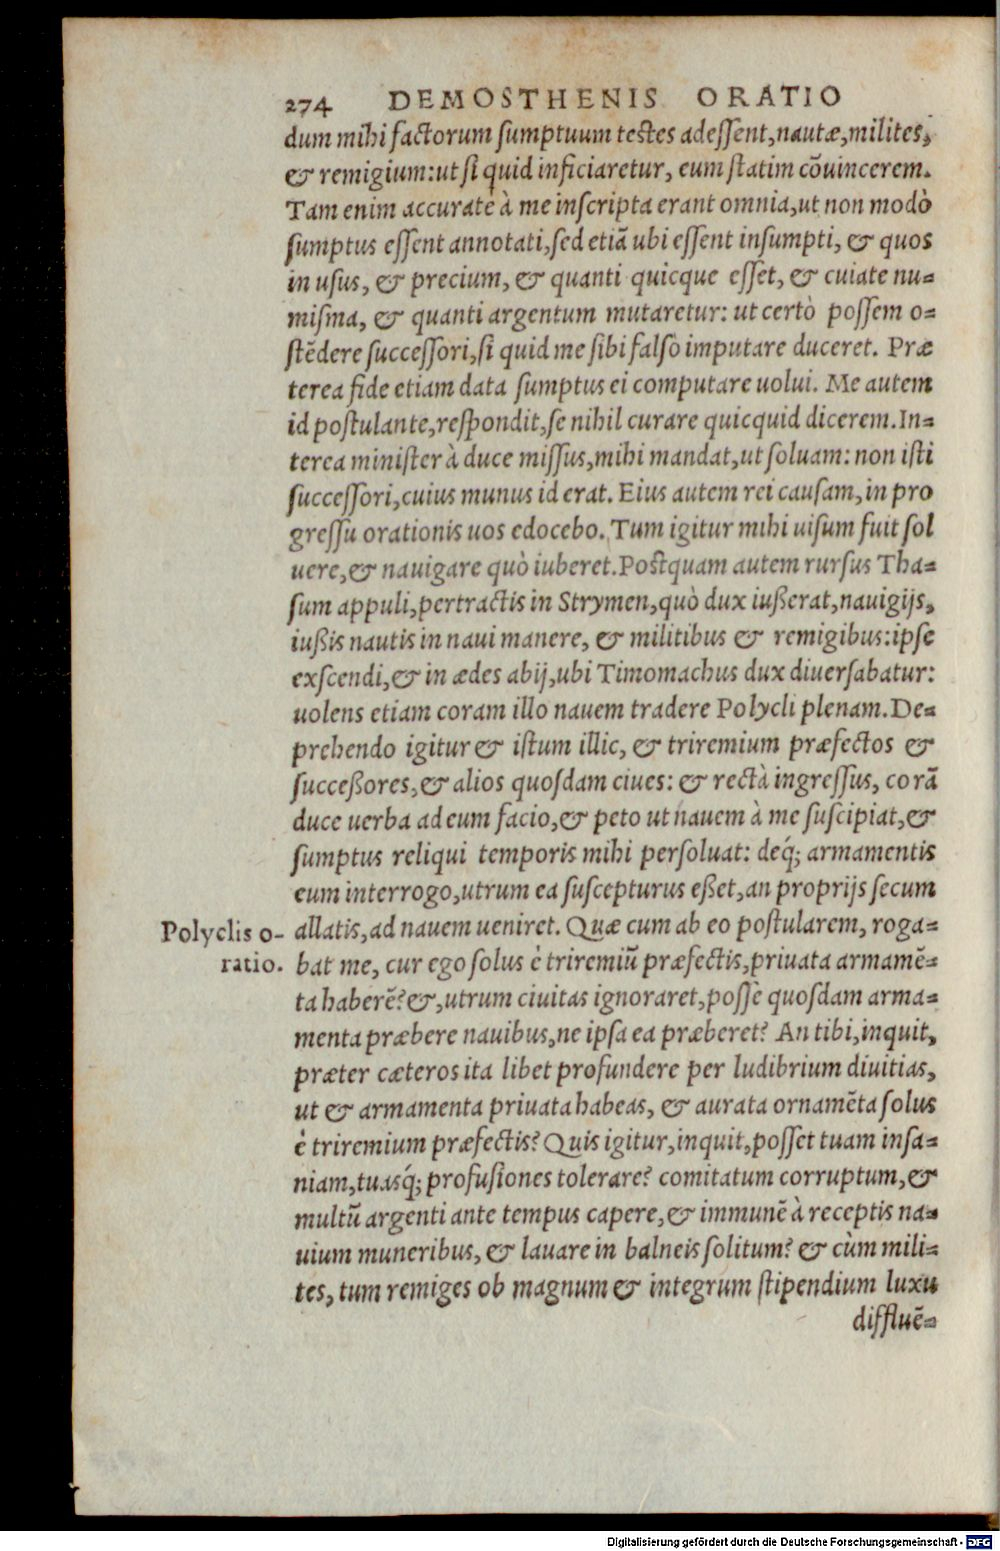 274 DEMOSTHENIS ORATIO
dum mihi factorum sumptuum testes adessent, nautæ, milites,
& remigium: ut si quid inficiaretur, eum statim cõuincerem.
Tam enim accuratè à me inscripta erant omnia, ut non modò
sumptus essent annotati, sed etiã ubi essent insumpti, & quos
in usus, & precium, & quanti quicque esset, & cuiate nu=
misma, & quanti argentum mutaretur: ut certò possem o=
stẽdere successori, si quid me sibi falsò imputare duceret. Præ
terea fide etiam data sumptus ei computare uolui. Me autem
id postulante, respondit, se nihil curare quicquid dicerem. In=
terea minister à duce missus, mihi mandat, ut soluam: non isti
successori, cuius munus id erat. Eius autem rei causam, in pro
gressu orationis uos edocebo. Tum igitur mihi uisum fuit sol
uere, & nauigare quò iuberet. Postquam autem rursus Tha=
sum appuli, pertractis in Strymen, quò dux iußerat, nauigijs,
iußis nautis in naui manere, & militibus & remigibus: ipse
exscendi, & in ædes abij, ubi Timomachus dux diuersabatur:
uolens etiam coram illo nauem tradere Polycli plenam. De=
prehendo igitur & istum illic, & triremium præfectos &
succeßores, & alios quosdam ciues: & rectà ingressus, corã
duce uerba ad eum facio, & peto ut nauem à me suscipiat, &
sumptus reliqui temporis mihi persoluat: deq́; armamentis
eum interrogo, utrum ea suscepturus eßet, an proprijs secum
Polyclis o-
ratio.
allatis, ad nauem ueniret. Quæ cum ab eo postularem, roga=
bat me, cur ego solus è triremiũ præfectis, priuata armamẽ=
ta haberẽ? &, utrum ciuitas ignoraret, posse quosdam arma=
menta præbere nauibus, ne ipsa ea præberet? An tibi, inquit,
præter cæteros ita libet profundere per ludibrium diuitias,
ut & armamenta priuata habeas, & aurata ornamẽta solus
è triremium præfectis? Quis igitur, inquit, posset tuam insa=
niam, tuasq́; profusiones tolerare? comitatum corruptum, &
multũ argenti ante tempus capere, & immunẽ à receptis na=
uium muneribus, & lauare in balneis solitum? & cùm mili=
tes, tum remiges ob magnum & integrum stipendium luxu
diffluẽ=
Digitalisierung gefördert durch die Deutsche Forschungsgemeinschaft - DFG